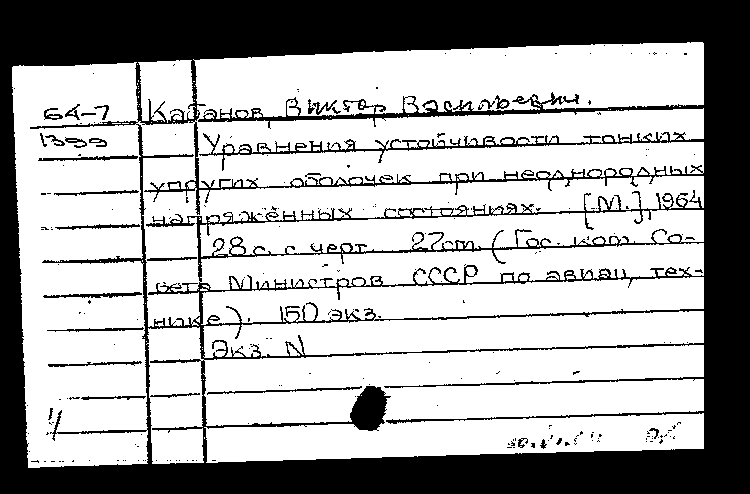 64-7 Кабанов, Виктор Васильевич.
1399 Уравнения устойчивости тонких
упругих оболочек при неоднородных
напряжённых состояниях. [М.], 1964
28 с. с черт. 27см. (Гос. ком. Со-
вета Министров СССР по авиац. тех-
нике). 150 экз.
Экз. N